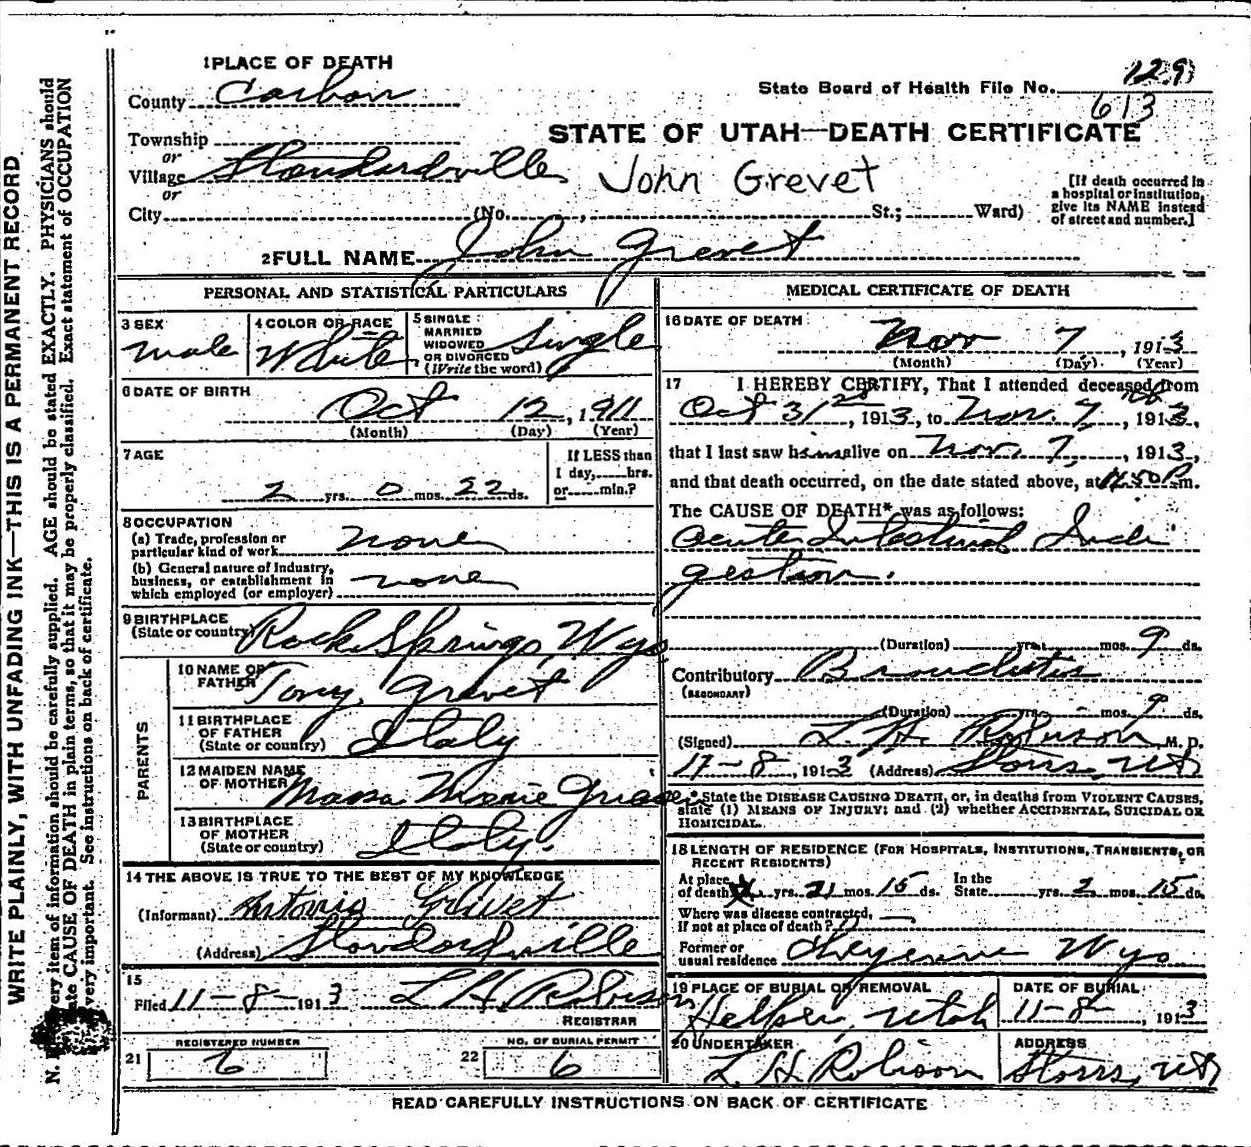 1 PLACE OF DEATH
County Carbon
State Board of Health File No. 129
613
Township
or
Village Standardville
or
City (No. , St.; Ward)
STATE OF UTAH—DEATH CERTIFICATE
John Grevet
[If death occurred in
a hospital or institution,
give its NAME instead
of street and number.]
2 FULL NAME John Grevet
PERSONAL AND STATISTICAL PARTICULARS
3 SEX
male
4 COLOR OR RACE
White
5 SINGLE
MARRIED
WIDOWED
OR DIVORCED
(Write the word)
Single
6 DATE OF BIRTH
Oct 12, 1911
(Month) (Day) (Year)
7 AGE
2 yrs. 0 mos. 22 ds.
If LESS than
1 day, hrs.
or min.?
8 OCCUPATION
(a) Trade, profession or
particular kind of work none
(b) General nature of Industry,
business, or establishment in
which employed (or employer) none
9 BIRTHPLACE
(State or country) Rock Springs, Wyo
PARENTS
10 NAME OF
FATHER Tony Grevet
11 BIRTHPLACE
OF FATHER
(State or country) Italy
12 MAIDEN NAME
OF MOTHER Marie
13 BIRTHPLACE
OF MOTHER
(State or country) Italy.
14 THE ABOVE IS TRUE TO THE BEST OF MY KNOWLEDGE
(Informant) Antonio Grivet
(Address) Standardville
15
Filed 11-8-1913 L H Robison
REGISTRAR
REGISTERED NUMBER
21 6
NO. OF BURIAL PERMIT
22 6
MEDICAL CERTIFICATE OF DEATH
16 DATE OF DEATH
Nov 7, 1913
(Month) (Day) (Year)
17 I HEREBY CERTIFY, That I attended deceased from
Oct 31st, 1913, to Nov. 7, 1913,
that I last saw him alive on Nov. 7, 1913,
and that death occurred, on the date stated above, at 11.50 P m.
The CAUSE OF DEATH* was as follows:
Acute Intestinal Indi
gestion.
(Duration) yrs. mos. 9 ds.
Contributory Bronchitis
(SECONDARY)
(Duration) yrs. - mos. 9 ds.
(Signed) L. H. Robison, M. D.
11-8, 1913 (Address) Storrs, Ut
* State the DISEASE CAUSING DEATH, or, in deaths from VIOLENT CAUSES,
state (1) MEANS OF INJURY; and (2) whether ACCIDENTAL, SUICIDAL OR
HOMICIDAL.
18 LENGTH OF RESIDENCE (FOR HOSPITALS, INSTITUTIONS, TRANSIENTS, OR
RECENT RESIDENTS)
At place
of death yrs. mos. 15 ds.
In the
State yrs. 2 mos. 15 ds.
Where was disease contracted,
if not at place of death?
Former or
usual residence Cheyenne Wyo
19 PLACE OF BURIAL OR REMOVAL
Helper, Utah
DATE OF BURIAL
11-8-, 1913
20 UNDERTAKER
L. H. Robison
ADDRESS
Storrs, Ut
READ CAREFULLY INSTRUCTIONS ON BACK OF CERTIFICATE
WRITE PLAINLY, WITH UNFADING INK—THIS IS A PERMANENT RECORD
N. ery item of information should be carefully supplied. AGE should be stated EXACTLY. PHYSICIANS should
ate CAUSE OF DEATH in plain terms, so that it may be properly classified. Exact statement of OCCUPATION
very important. See instructions on back of certificate.